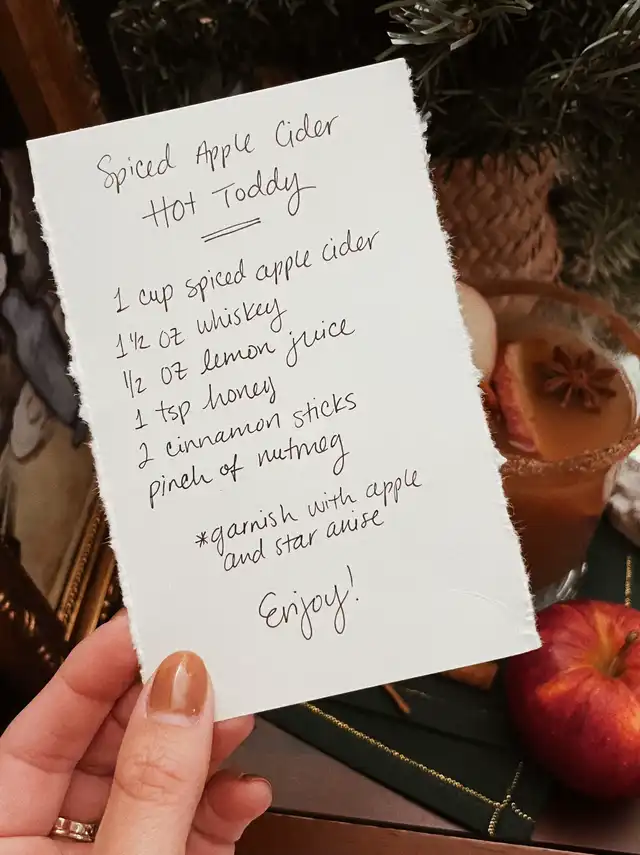 Spiced Apple Cider
Hot Toddy
1 cup spiced apple cider
1 1/2 oz whiskey
1/2 oz lemon juice
1 tsp honey
2 cinnamon sticks
pinch of nutmeg
*garnish with apple
and star anise
Enjoy!